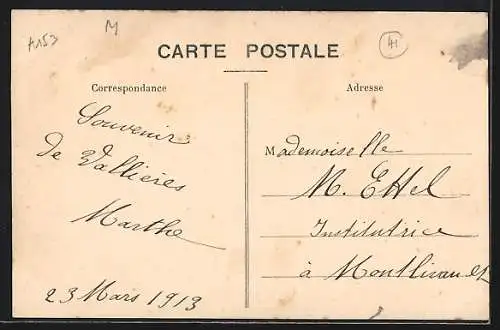 A153
M
41
CARTE POSTALE
Correspondance
Adresse
Souvenir
de Vallieres
Marthe
23 Mars 1913
Mademoiselle
M. Ettel
Institutrice
à Montlivault